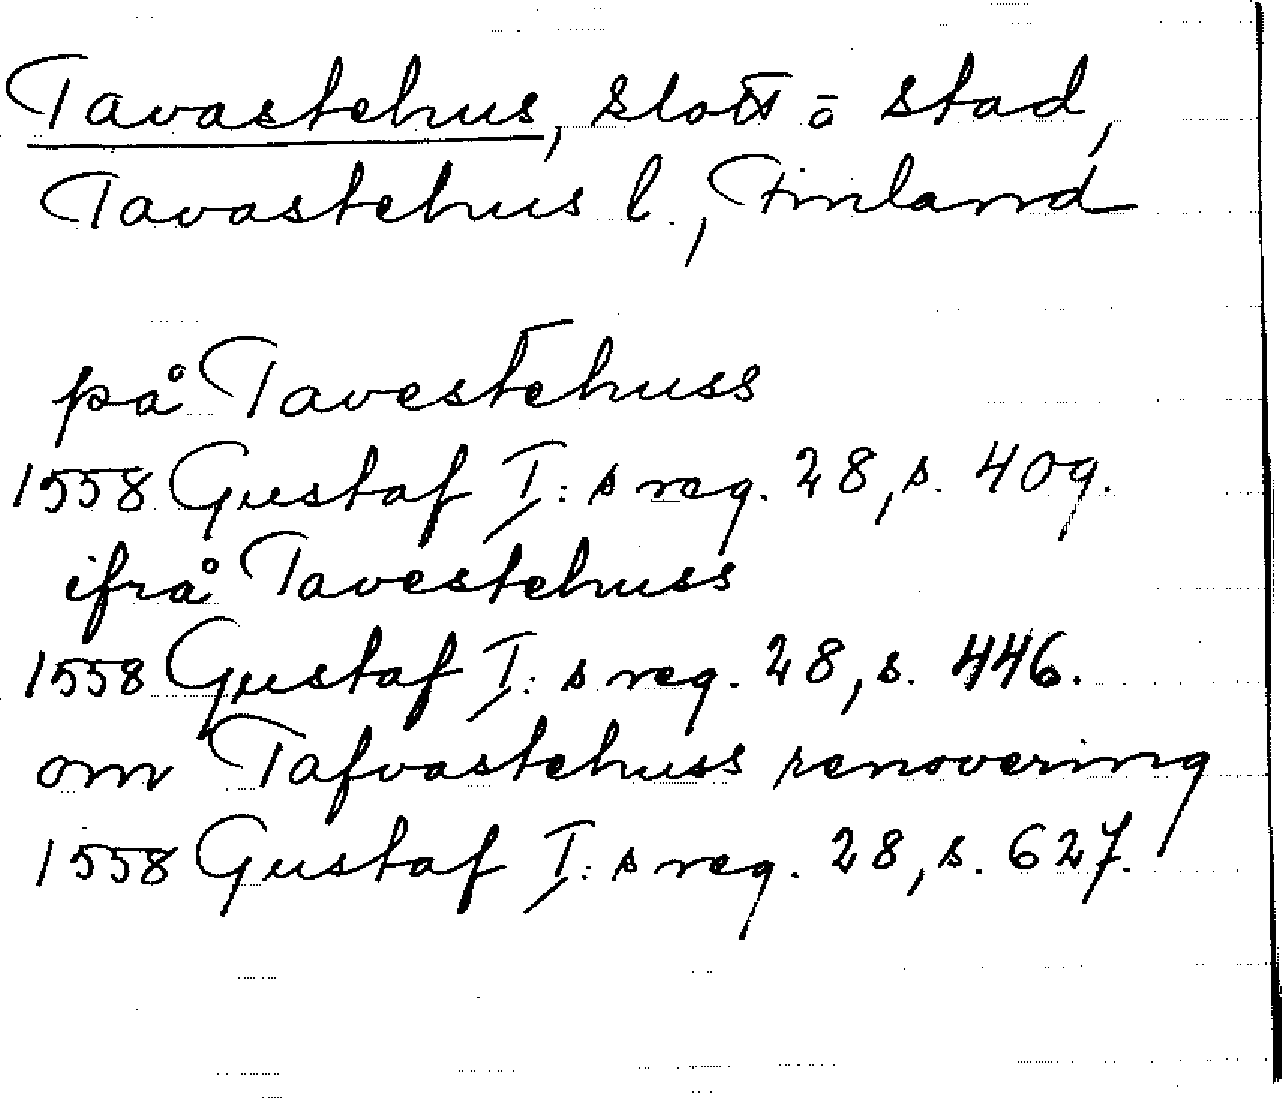 Tavastehus, slott o stad,
Tavastehus l., Finland
på Tavestehuss
1558 Gustaf I:s reg. 28, s. 409.
ifrå Tavestehuss
1558 Gustaf I:s reg. 28, s. 446.
om Tafvastehuss renovering
1558 Gustaf I:s reg. 28, s. 627.